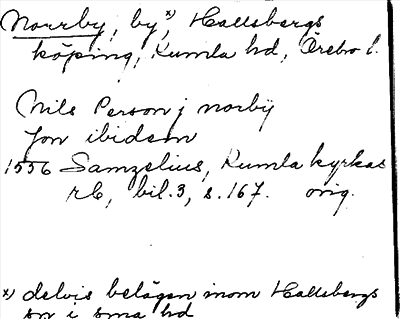 Norrby, by x), Hallsbergs
köping, Kumla hd, Örebro l.
Nils Person j norby
Jon ibidem
1556 Samzelius, Kumla kyrkas
rb, bil. 3, s. 167. orig.
x) delvis belägen inom Hallsbergs
sn i sma hd